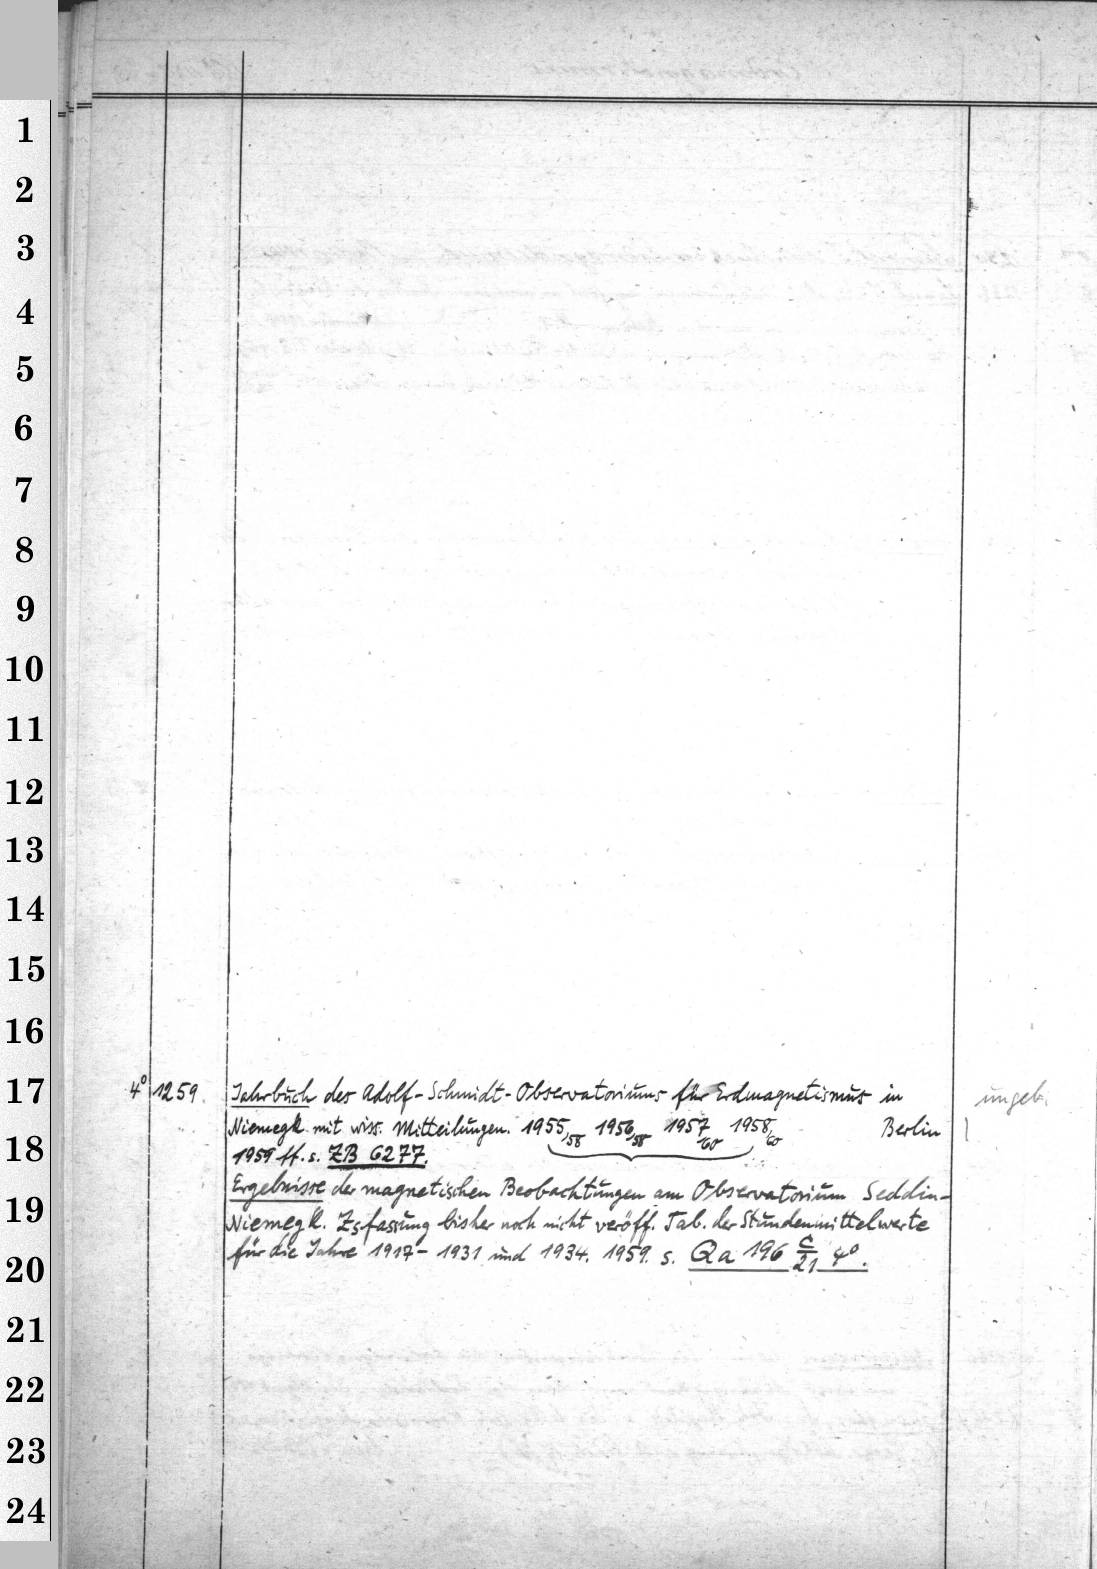 1
2
3
4
5
6
7
8
9
10
11
12
13
14
15
16
17
18
19
20
21
22
23
24
4° 1259. Jahrbuch des Adolf-Schmidt-Observatoriums für Erdmagnetismus in ungeb.
Niemegk mit wiss. Mitteilungen. 1955,58 1956,58 1957,60 1958,60 Berlin
1959 ff. s. ZB 6277.
Ergebnisse der magnetischen Beobachtungen am Observatorium Seddin-
Niemegk. Zsfassung bisher noch nicht veröff. Tab. der Stundenmittelwerte
für die Jahre 1917-1931 und 1934. 1959. s. Qa 196 C/21 4°.